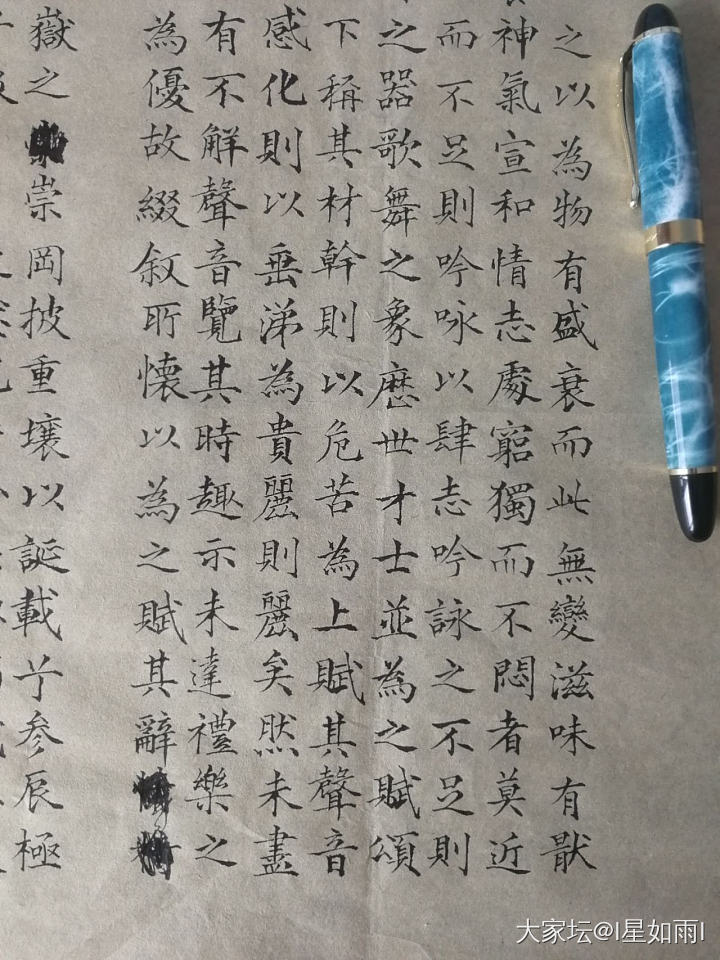 之以為物有盛衰而此無變滋味有猒
神氣宣和情志處窮獨而不悶者莫近
而不足則吟咏以肆志吟詠之不足則
之器歌舞之象歷世才士並為之賦頌
下稱其材幹則以危苦為上賦其聲音
感化則以垂涕為貴麗則麗矣然未盡
有不解聲音覽其時趣示未達禮樂之
為優故綴叙所懷以為之賦其辭
嶽之崇岡披重壤以誕載兮参辰極
大家坛@l星如雨l